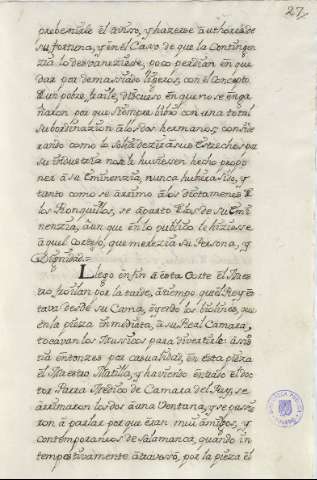 27
prebenirle el aviso, y hazerse authores de
su fortuna, y en el Caso de que la Contingen
zia lo desvaneziese, poco perdian en que
dar por demasiado ligeros, con el Concepto
de un pobre fraile, discurso en que no se enga
ñaron por que siempre vibio con una total
subordinazion a los dos hermanos; conside
rando como lo solia dezir a sus Estrechos por
su Eminenzia, nunca hubiera sido, y
tanto como se arrimo a los Dictamenes de
los Ronquillos, se aparto de los de su Emi
nenzia, aun que en lo publico le hiziese
aquel Cortejo, que merezia su Persona, y
Dignidad=
Llego en fin a esta Corte el Maes
tro froilan por la tarde, a tiempo que el Rey es
tava desde su Cama, oyendo los biolines, que
en la pieza inmediata, a su Real Camara,
tocavan los Musicos para divertirle asis
tia entonzes por casualidad, en esta pieza
el Maestro Matilla, y haviendo entrado el do
tor Parra Medico de Camara del Rey, se
arrimaron los dos a una Ventana, y se pusie
ron a parlar por que eran mui amigos, y
contemporaneos de Salamanca, quando in
tempestivamente atraveso, por la pieza el